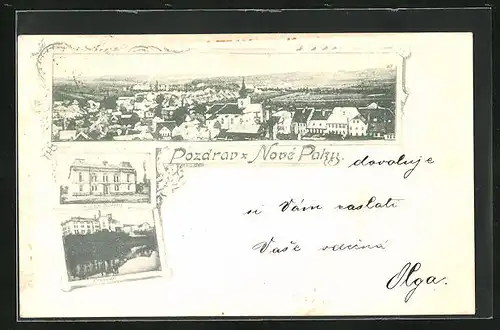 Pozdrav z Nové Paky.
dovoluje
si Vám zaslati
Vaše vděčná
Olga.